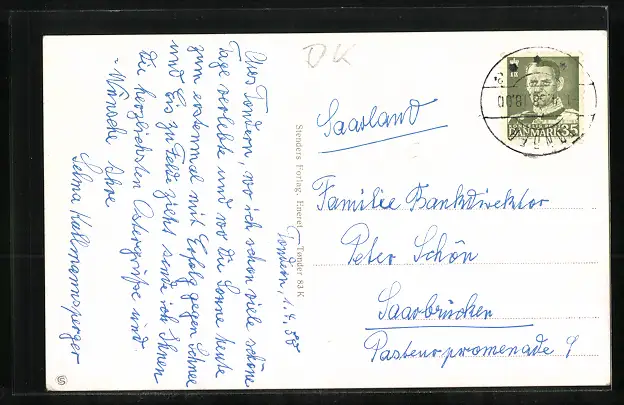 DK
Tondern, 1.4.58
Aus Tondern, wo ich schon viele schöne
Tage verlebte und wo die Sonne heute
zum erstenmal mit Erfolg gegen Schnee
und Eis zu Felde zieht sende ich Ihnen
die herzlichsten Ostergrüße und
-Wünsche Ihre
Selma Kallmannsperger
Stenders Forlag. Eneret. Tønder 83 K
DANMARK 35
Saarland
Familie Bankdirektor
Peter Schön
Saarbrücken
Pasteurpromenade 9